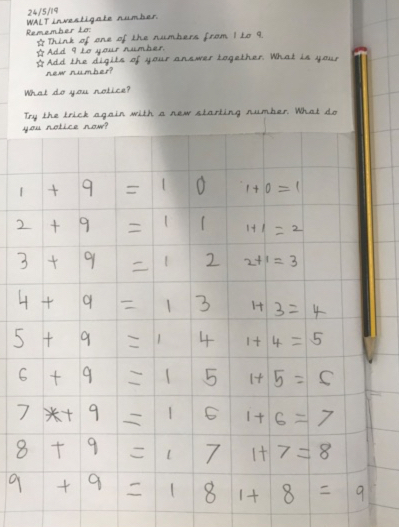 24/5/19
WALT investigate number.
Remember to:
☆ Think of one of the numbers from 1 to 9.
☆ Add 9 to your number.
☆ Add the digits of your answer together. What is your
new number?
What do you notice?
Try the trick again with a new starting number. What do
you notice now?
1 + 9 = 1 0 1+0=1
2 + 9 = 1 1 1+1=2
3 + 9 = 1 2 2+1=3
4 + 9 = 1 3 1+3=4
5 + 9 = 1 4 1+4=5
6 + 9 = 1 5 1+5=6
7 + 9 = 1 6 1+6=7
8 + 9 = 1 7 1+7=8
9 + 9 = 1 8 1+8=9